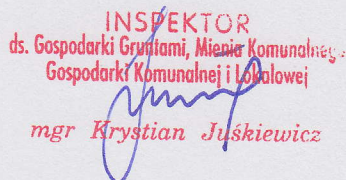 INSPEKTOR
ds. Gospodarki Gruntami, Mienia Komunalnego,
Gospodarki Komunalnej i Lokalowej
mgr Krystian Juśkiewicz